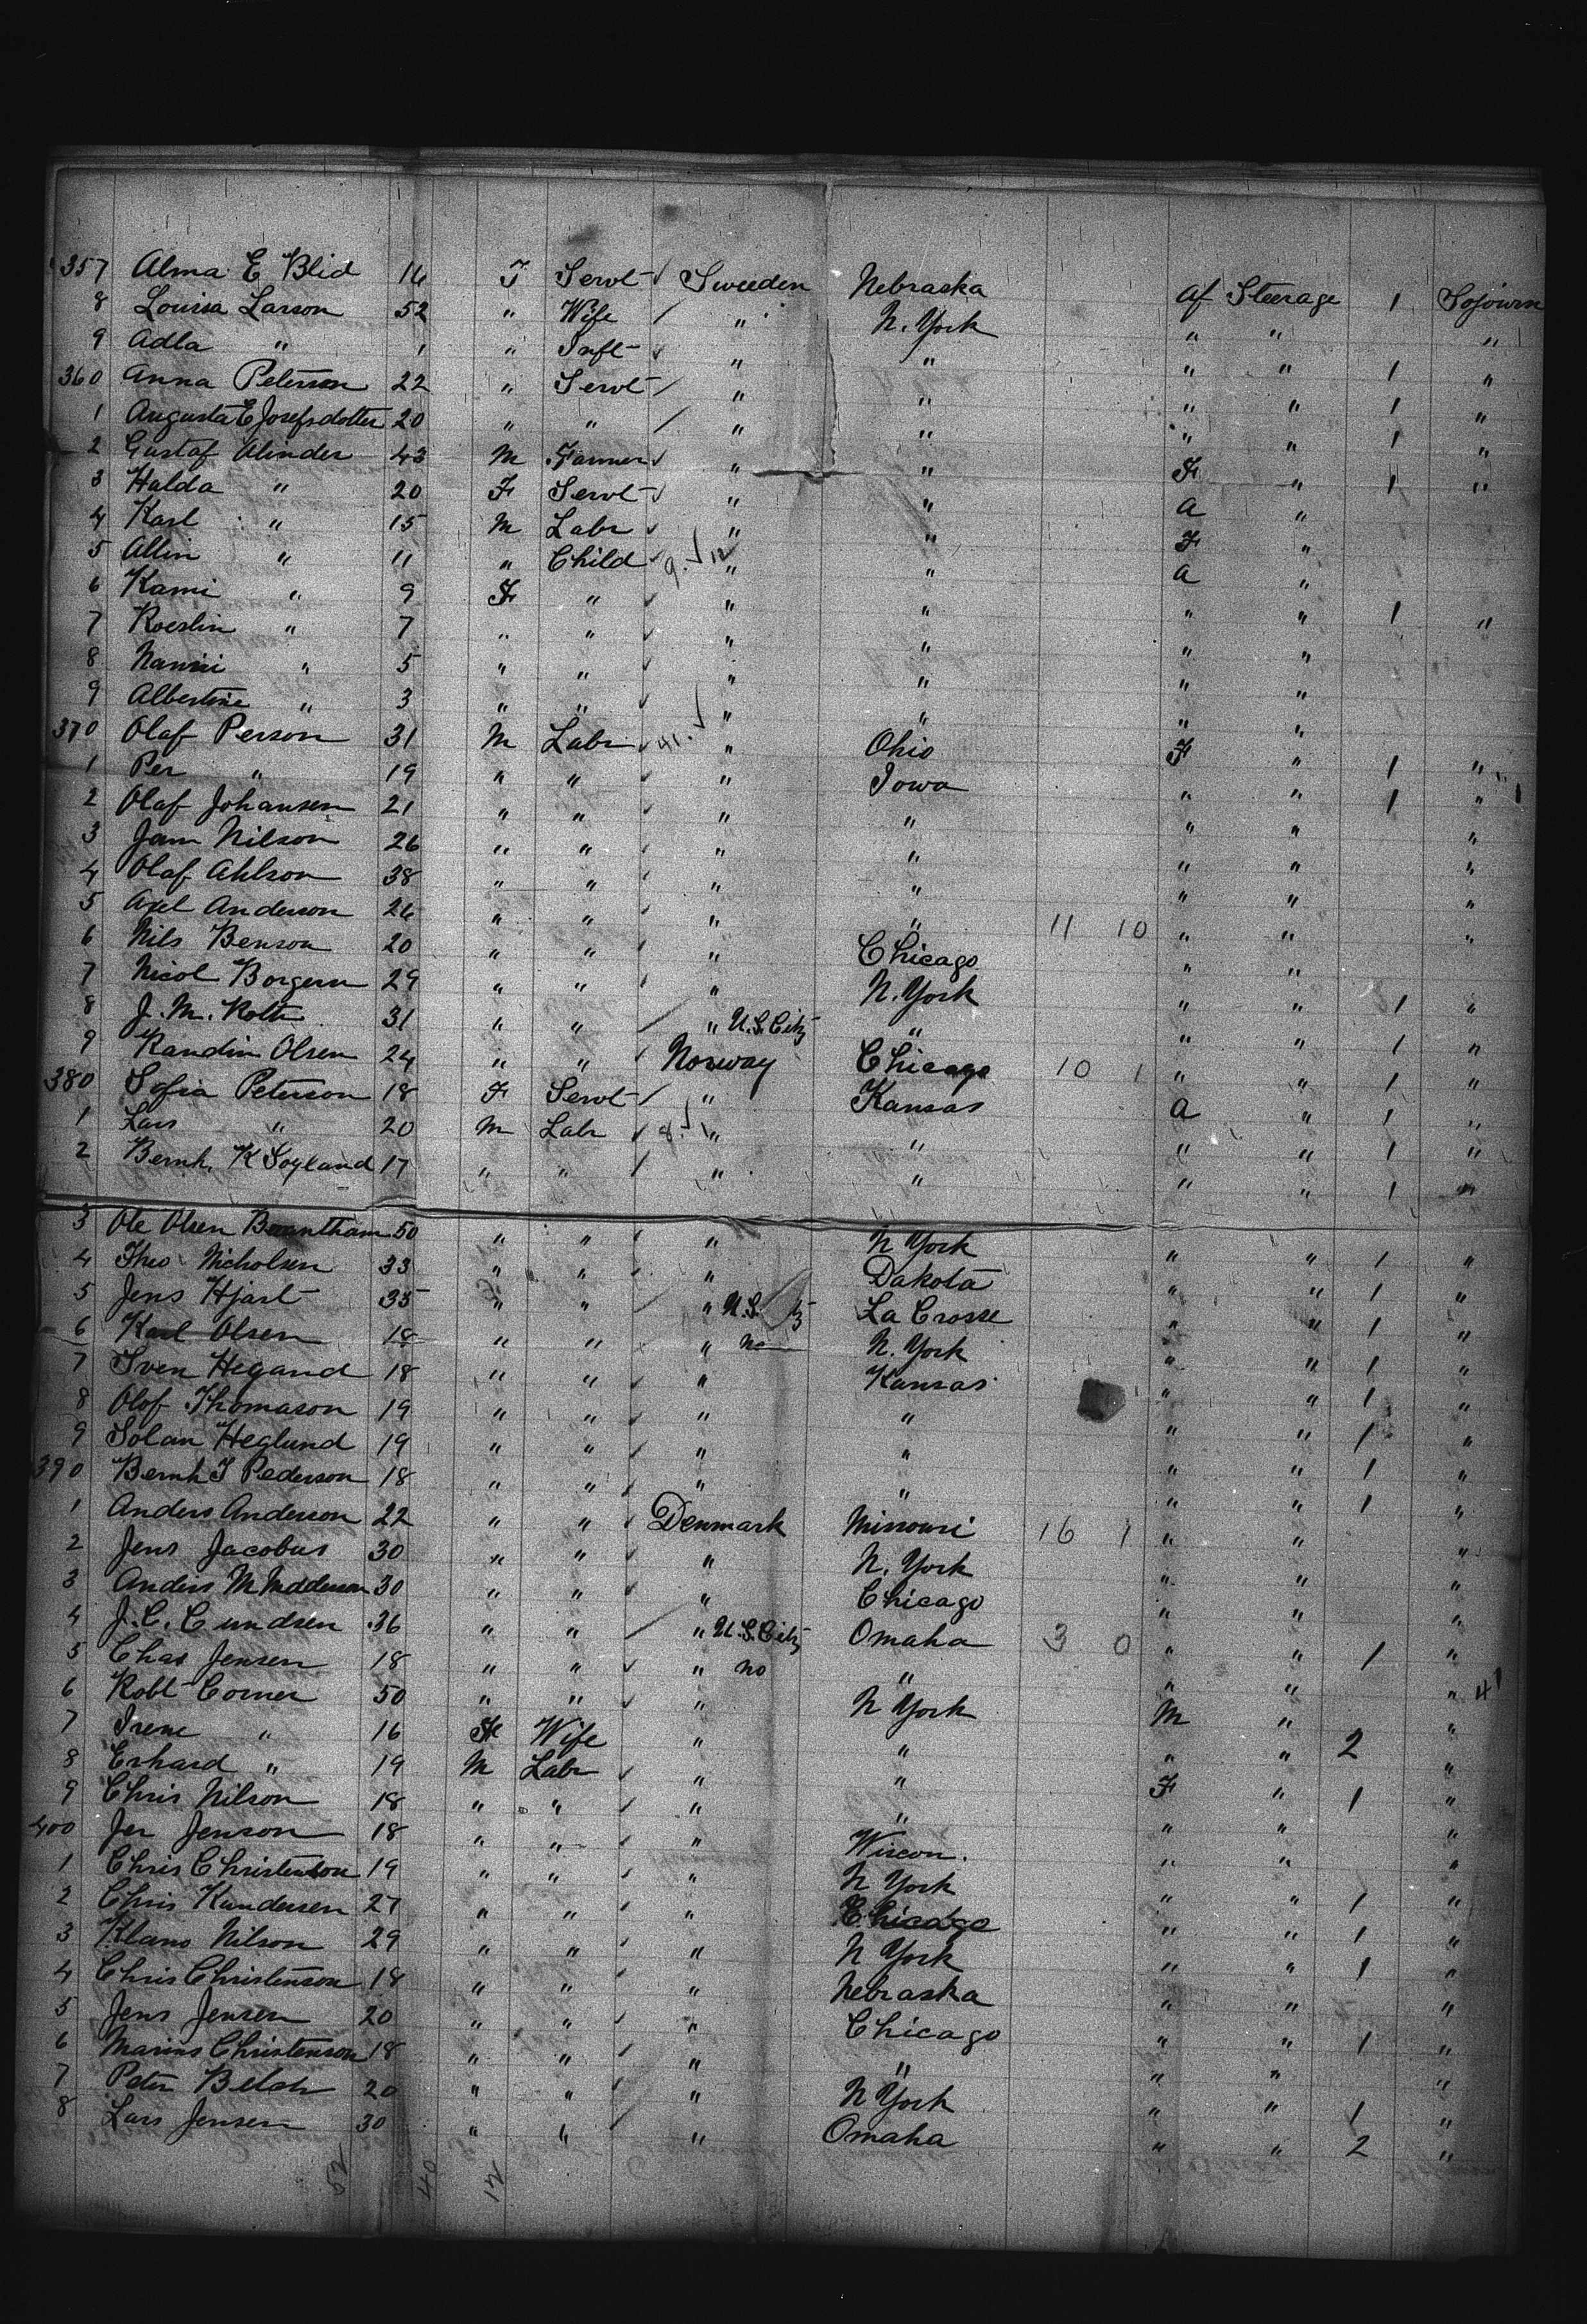 357 Alma E Blid 16 F Servt ✓ Sweeden Nebraska Af Steerage 1 Sojourn
8 Louisa Larson 52 " Wife / " N. York " " "
9 Adla " 1 " Inft ✓ " " " " 1 "
360 Anna Peterson 22 " Servt / " " " " 1 "
1 Augusta E Josefsdotter 20 " " / " " " " 1 "
2 Gustaf Alinder 43 M Farmer ✓ " " F " 1 "
3 Halda " 20 F Servt ✓ " " a "
4 Karl " 15 M Labr ✓ " " F "
5 Allin " 11 " Child ✓ 9. ✓ 12 " " a "
6 Kami " 9 F " ✓ " " " " 1 "
7 Roeslin " 7 " " ✓ " " " "
8 Nanni " 5 " " ✓ " " " "
9 Albertine " 3 " " ✓ " " " "
370 Olaf Person 31 M Labr ✓ 41. ✓ " Ohio F " 1 "
1 Per " 19 " " ✓ " Iowa " " 1 "
2 Olaf Johansen 21 " " ✓ " " " " "
3 Jam Nilson 26 " " ✓ " " " " "
4 Olaf Ahlson 38 " " ✓ " " " " "
5 Axel Anderson 26 " " ✓ " " 11 10 " " "
6 Nils Benson 20 " " ✓ " Chicago " "
7 Nicol Borgern 29 " " ✓ " N. York " " 1 "
8 J. M. Roth 31 " " / " U.S. Citz " " " 1 "
9 Randin Olsen 24 " " ✓ Norway Chicago 10 1 " " 1 "
380 Sofia Peterson 18 F Servt / " Kansas a " 1 "
1 Lars " 20 M Labr ✓ 8. ✓ " " " " 1 "
2 Bernh. K Soyland 17 " " / " " " " 1 "
3 Ole Olsen 50 " " ✓ " N York " " 1 "
4 Theo Nicholsen 33 " " ✓ " Dakota " " 1 "
5 Jens Hjart 35 " " / " U.S. La Crosse " " 1 "
6 Karl Olsen 18 " " " no N. York " " 1 "
7 Sven Hegand 18 " " ✓ " Kansas " " 1 "
8 Olof Thomason 19 " " ✓ " " " " 1 "
9 Solan Heglund 19 " " ✓ " " " " 1 "
390 Bernh J Pederson 18 " " ✓ " " " " 1 "
1 Anders Anderson 22 " " ✓ Denmark Missouri 16 1 " " "
2 Jens Jacobus 30 " " ✓ " N. York " " "
3 Anders M 30 " " ✓ " Chicago " " "
4 J. C. Cundsen 36 " " / " U.S. Citz Omaha 3 0 " " 1 "
5 Chas Jensen 18 " " ✓ " no " " " " 4
6 Robt Corner 50 " " ✓ " N York M " "
7 Irene " 16 F Wife " " " " 2 "
8 Erhard " 19 M Labr ✓ " " F " 1 "
9 Chris Nilson 18 " " ✓ " " " " "
400 Jer Jenson 18 " " ✓ " Wiscon. " " "
1 Chris Christenson 19 " " ✓ " N York " " 1 "
2 Chris Kundersen 27 " " ✓ " Chicago " " 1 "
3 Klans Nilson 29 " " ✓ " N York " " 1 "
4 Chris Christenson 18 " " ✓ " Nebraska " " "
5 Jens Jensen 20 " " ✓ " Chicago " " 1 "
6 Marius Christenson 18 " " ✓ " " " " "
7 Peter Belch 20 " " ✓ " N York " " 1 "
8 Lars Jensen 30 " " / " Omaha " " 2 "
52 40 12